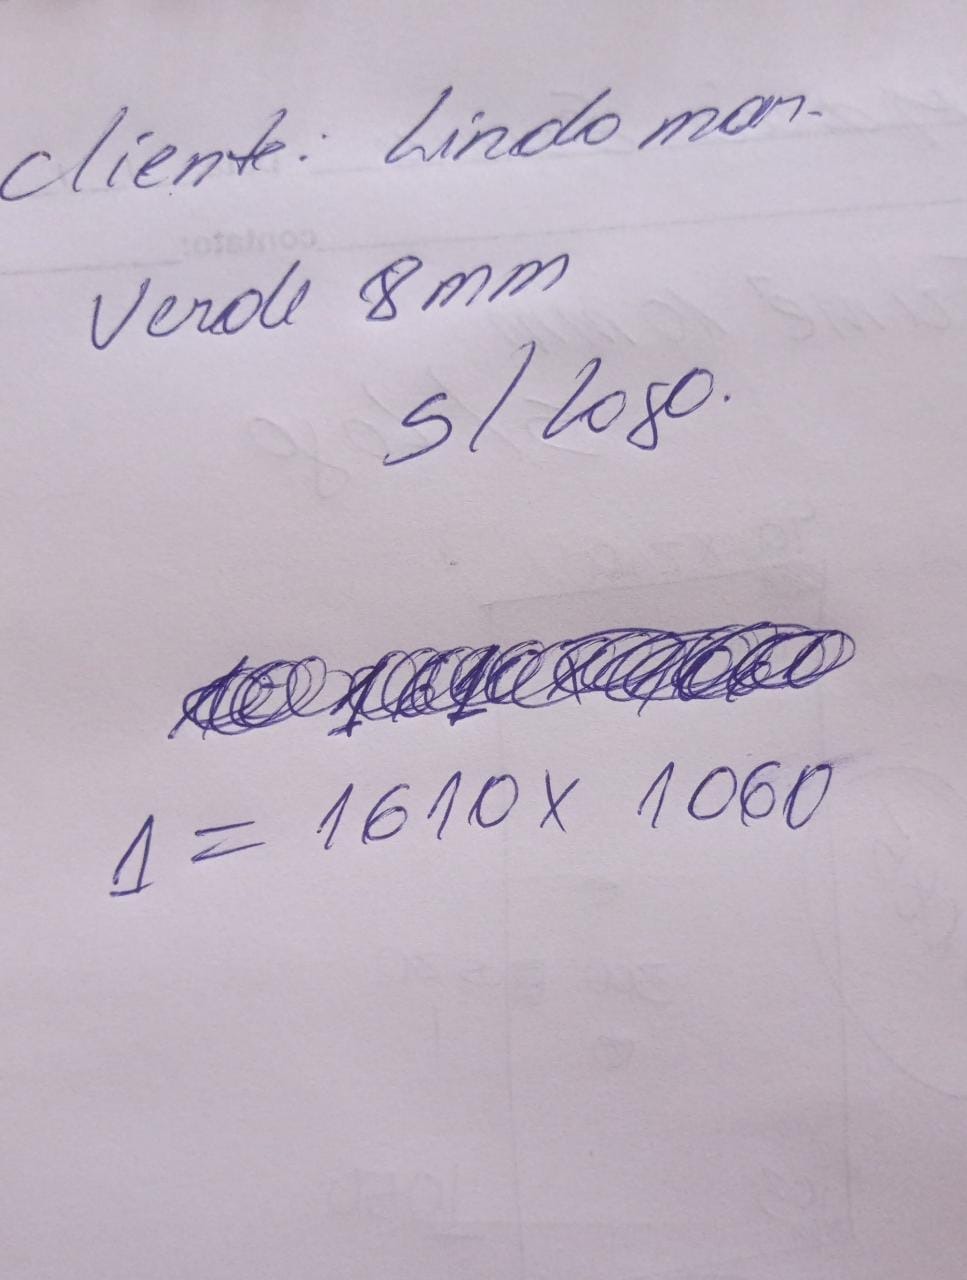 Cliente: Lindomar.
Verde 8mm
s/ logo.
1 = 1610 x 1060